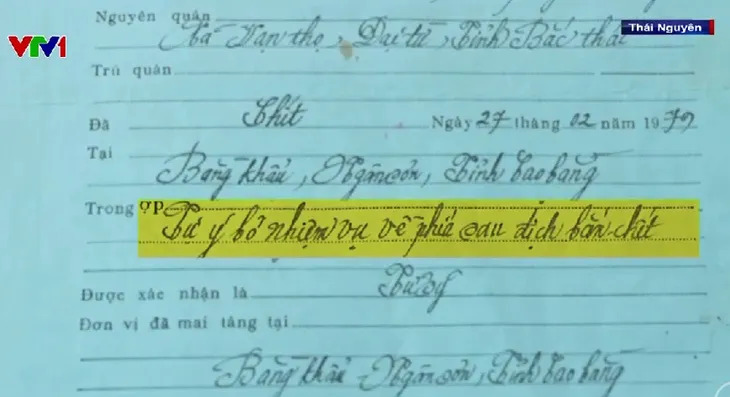 VTV1
Thái Nguyên
Nguyên quán Xã Vạn thọ, Đại từ, Tỉnh Bắc thái
Trú quán
Đã Chết Ngày 27 tháng 02 năm 1979
Tại Bằng khẩu, Ngân sơn, Tỉnh Cao bằng
Trong ợp Tự ý bỏ nhiệm vụ về phía sau địch bắn chết
Được xác nhận là Tử sỹ
Đơn vị đã mai táng tại
Bằng khẩu - Ngân sơn, Tỉnh Cao bằng